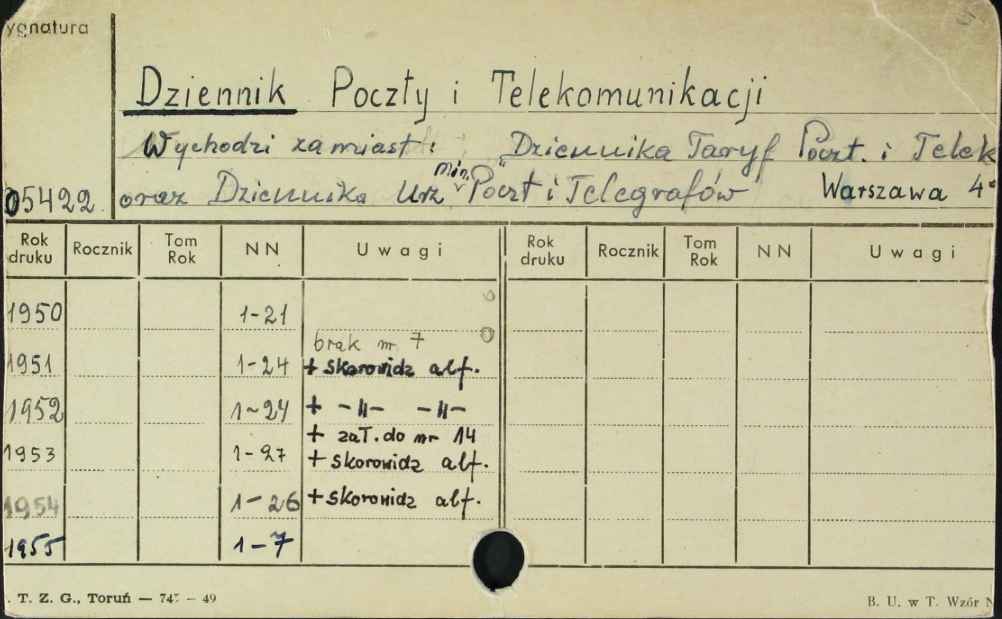 ygnatura
Dziennik Poczty i Telekomunikacji
Wychodzi zamiast: "Dziennika Taryf Poczt. i Telek
05422 oraz Dziennika Urz. Min. Poczt i Telegrafów" Warszawa 4°
Rok druku Rocznik Tom Rok NN Uwagi Rok druku Rocznik Tom Rok NN Uwagi
1950 1-21
brak nr 7
1951 1-24 + skorowidz alf.
1952 1-24 + -"- -"-
+ zał. do nr 14
1953 1-27 + skorowidz alf.
1954 1-26 + skorowidz alf.
1955 1-7
. T. Z. G., Toruń — 747 — 49 B. U. w T. Wzór N